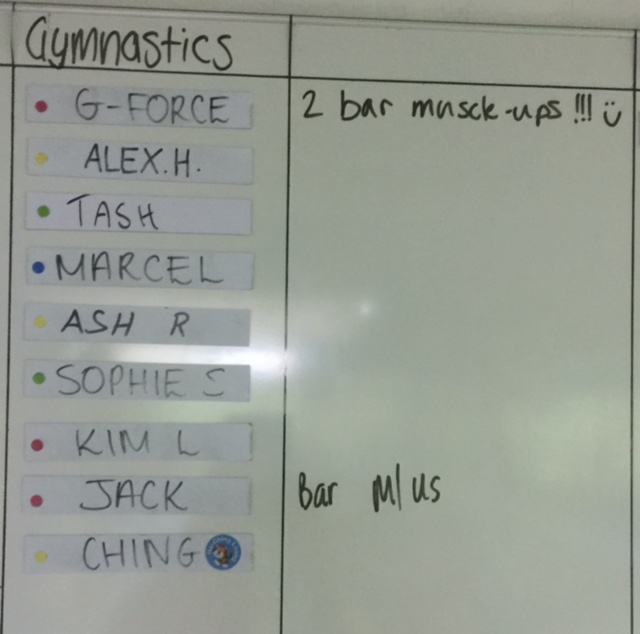 Gymnastics
G-FORCE 2 bar musck-ups !!!
ALEX.H.
TASH
MARCEL
ASH R
SOPHIE S
KIM L
JACK Bar M/us
CHING